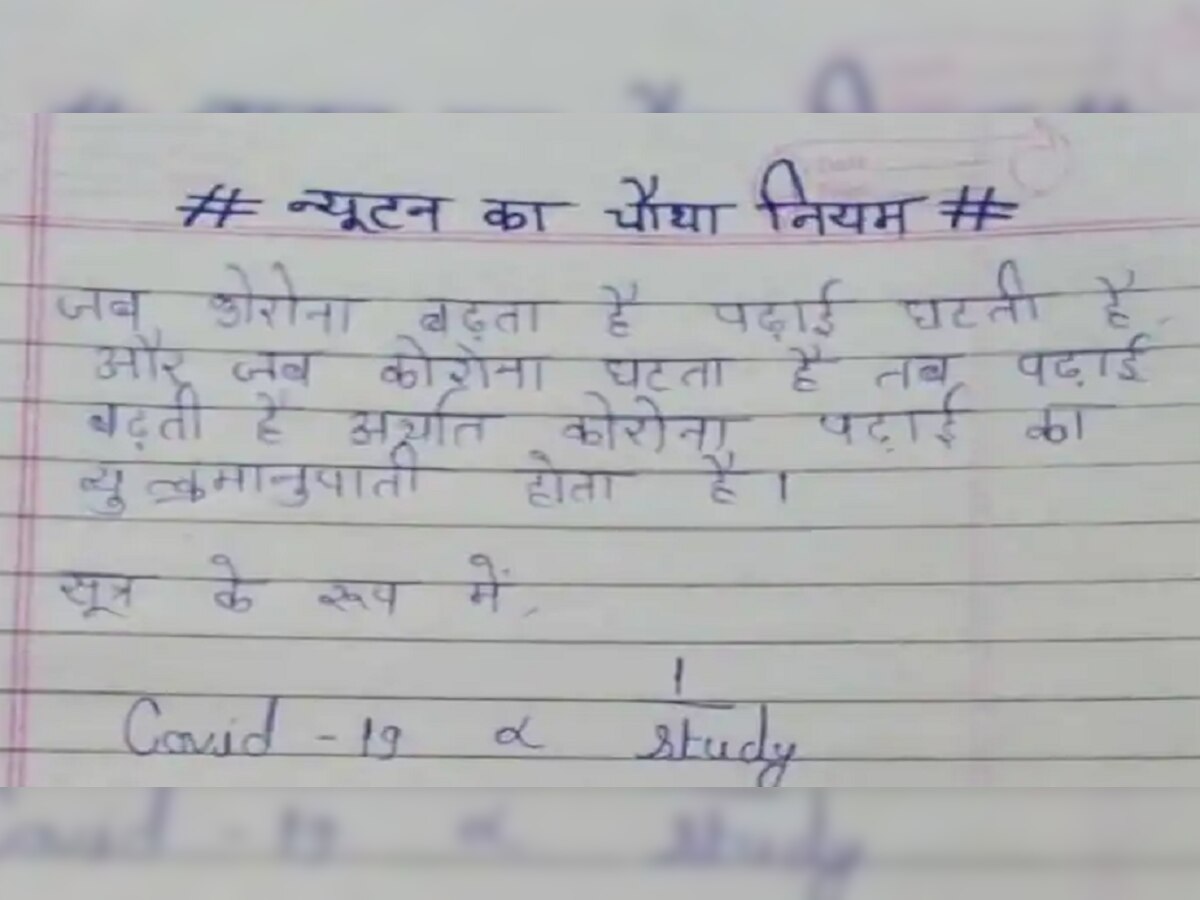 # न्यूटन का चौथा नियम #
जब कोरोना बढ़ता है पढ़ाई घटती है,
और जब कोरोना घटता है तब पढ़ाई
बढ़ती है अर्थात कोरोना पढ़ाई का
व्युत्क्रमानुपाती होता है।
सूत्र के रूप में,
1
Covid - 19 ∝ study